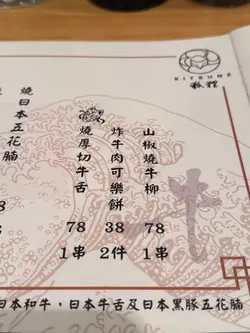 KITSUNE
狐狸
山椒燒牛柳
78
1串
炸牛肉可樂餅
38
2件
燒厚切牛舌
78
1串
燒日本五花腩
8
日本和牛，日本牛舌及日本黑豚五花腩
牛